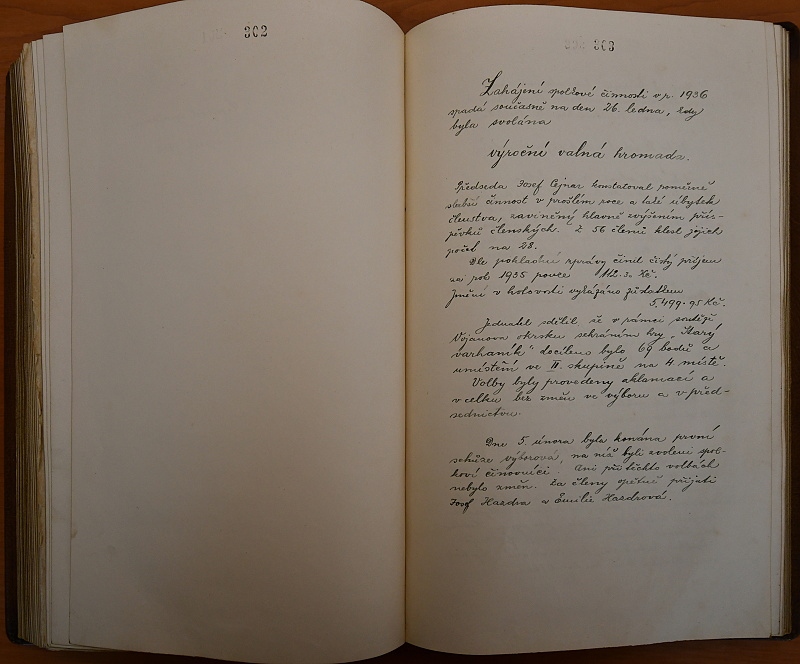 302
303
Zahájení spolkové činnosti v r. 1936
spadá současně na den 26. ledna, kdy
byla svolána
výroční valná hromada.
Předseda Josef Cejnar konstatoval poměrně
slabší činnost v prošlém roce a též úbytek
členstva, zaviněný hlavně zvýšením přís-
pěvků členských. Z 56 členů klesl jejich
počet na 28.
Dle pokladní zprávy činil čistý příjem
za rok 1935 pouze 112.30 Kč.
Jmění v hotovosti vykázáno zůstatkem
5.499.95 Kč.
Jednatel sdělil že v rámci soutěží
Vojanova okrsku sehráním hry „Starý
varhaník" docíleno bylo 69 bodů a
umístění ve II. skupině na 4. místě.
Volby byly provedeny aklamací a
v celku bez změn ve výboru a v před-
sednictvu.
Dne 5. února byla konána první
schůze výborová, na níž byli zvoleni spol-
koví činovníci. Ani při těchto volbách
nebylo změn. Za členy opětně přijati
Josef Hazdra a Emilie Hazdrová.